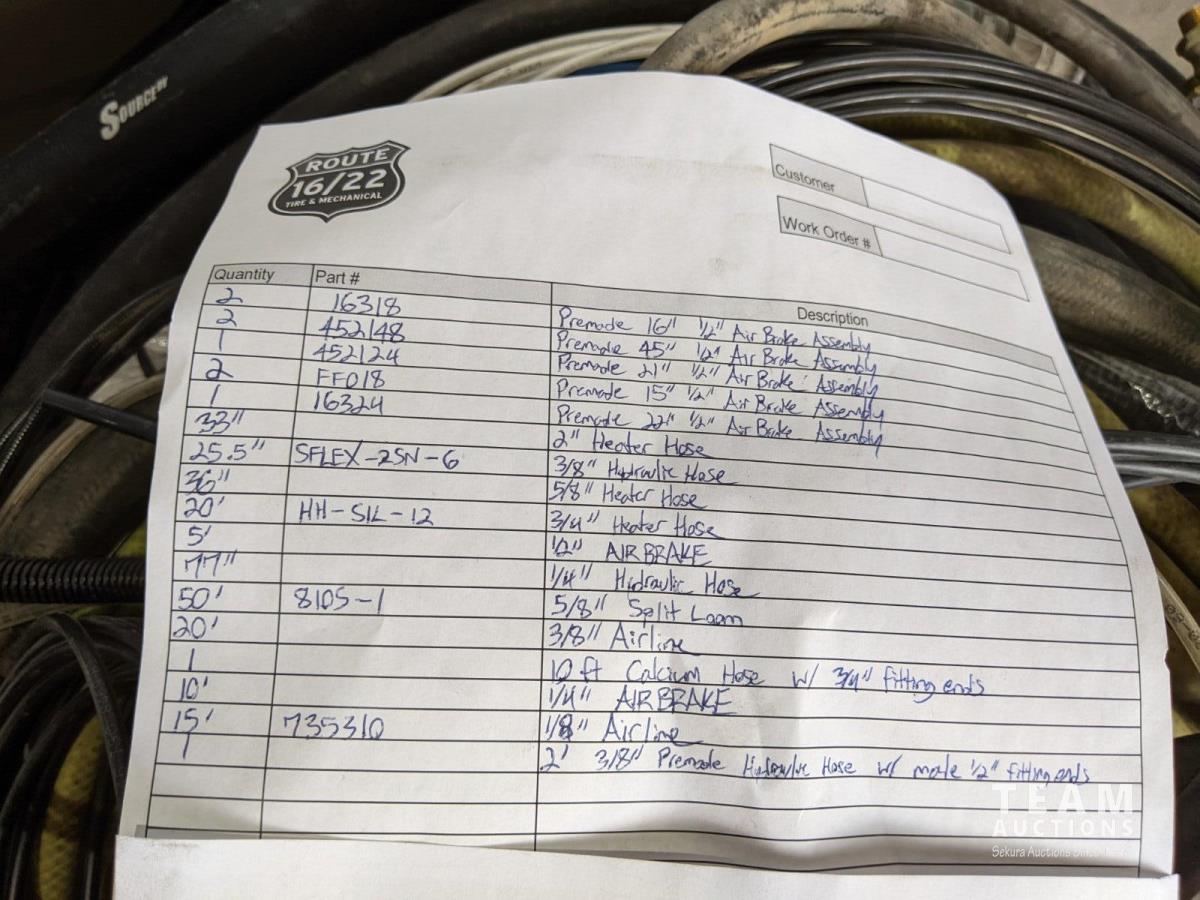 SOURCE BY
ROUTE
16/22
TIRE & MECHANICAL
Customer
Work Order #
Quantity Part # Description
2 16318 Premade 16" 1/2" Air Brake Assembly
2 452148 Premade 45" 1/2" Air Brake Assembly
1 452124 Premade 21" 1/2" Air Brake Assembly
2 FF018 Premade 15" 1/2" Air Brake Assembly
1 16324 Premade 22" 1/2" Air Brake Assembly
33" 2" Heater Hose
25.5" SFLEX-2SN-6 3/8" Hydraulic Hose
36" 5/8" Heater Hose
20' HH-SIL-12 3/4" Heater Hose
5' 1/2" AIR BRAKE
77" 1/4" Hydraulic Hose
50' 810S-1 5/8" Split Loom
20' 3/8" Airline
1 10 ft Calcium Hose w/ 3/4" fitting ends
10' 1/4" AIR BRAKE
15' 735310 1/8" Airline
1 2' 3/8" Premade Hydraulic Hose w/ male 1/2" fitting ends
TEAM
AUCTIONS
Sekura Auctions Since